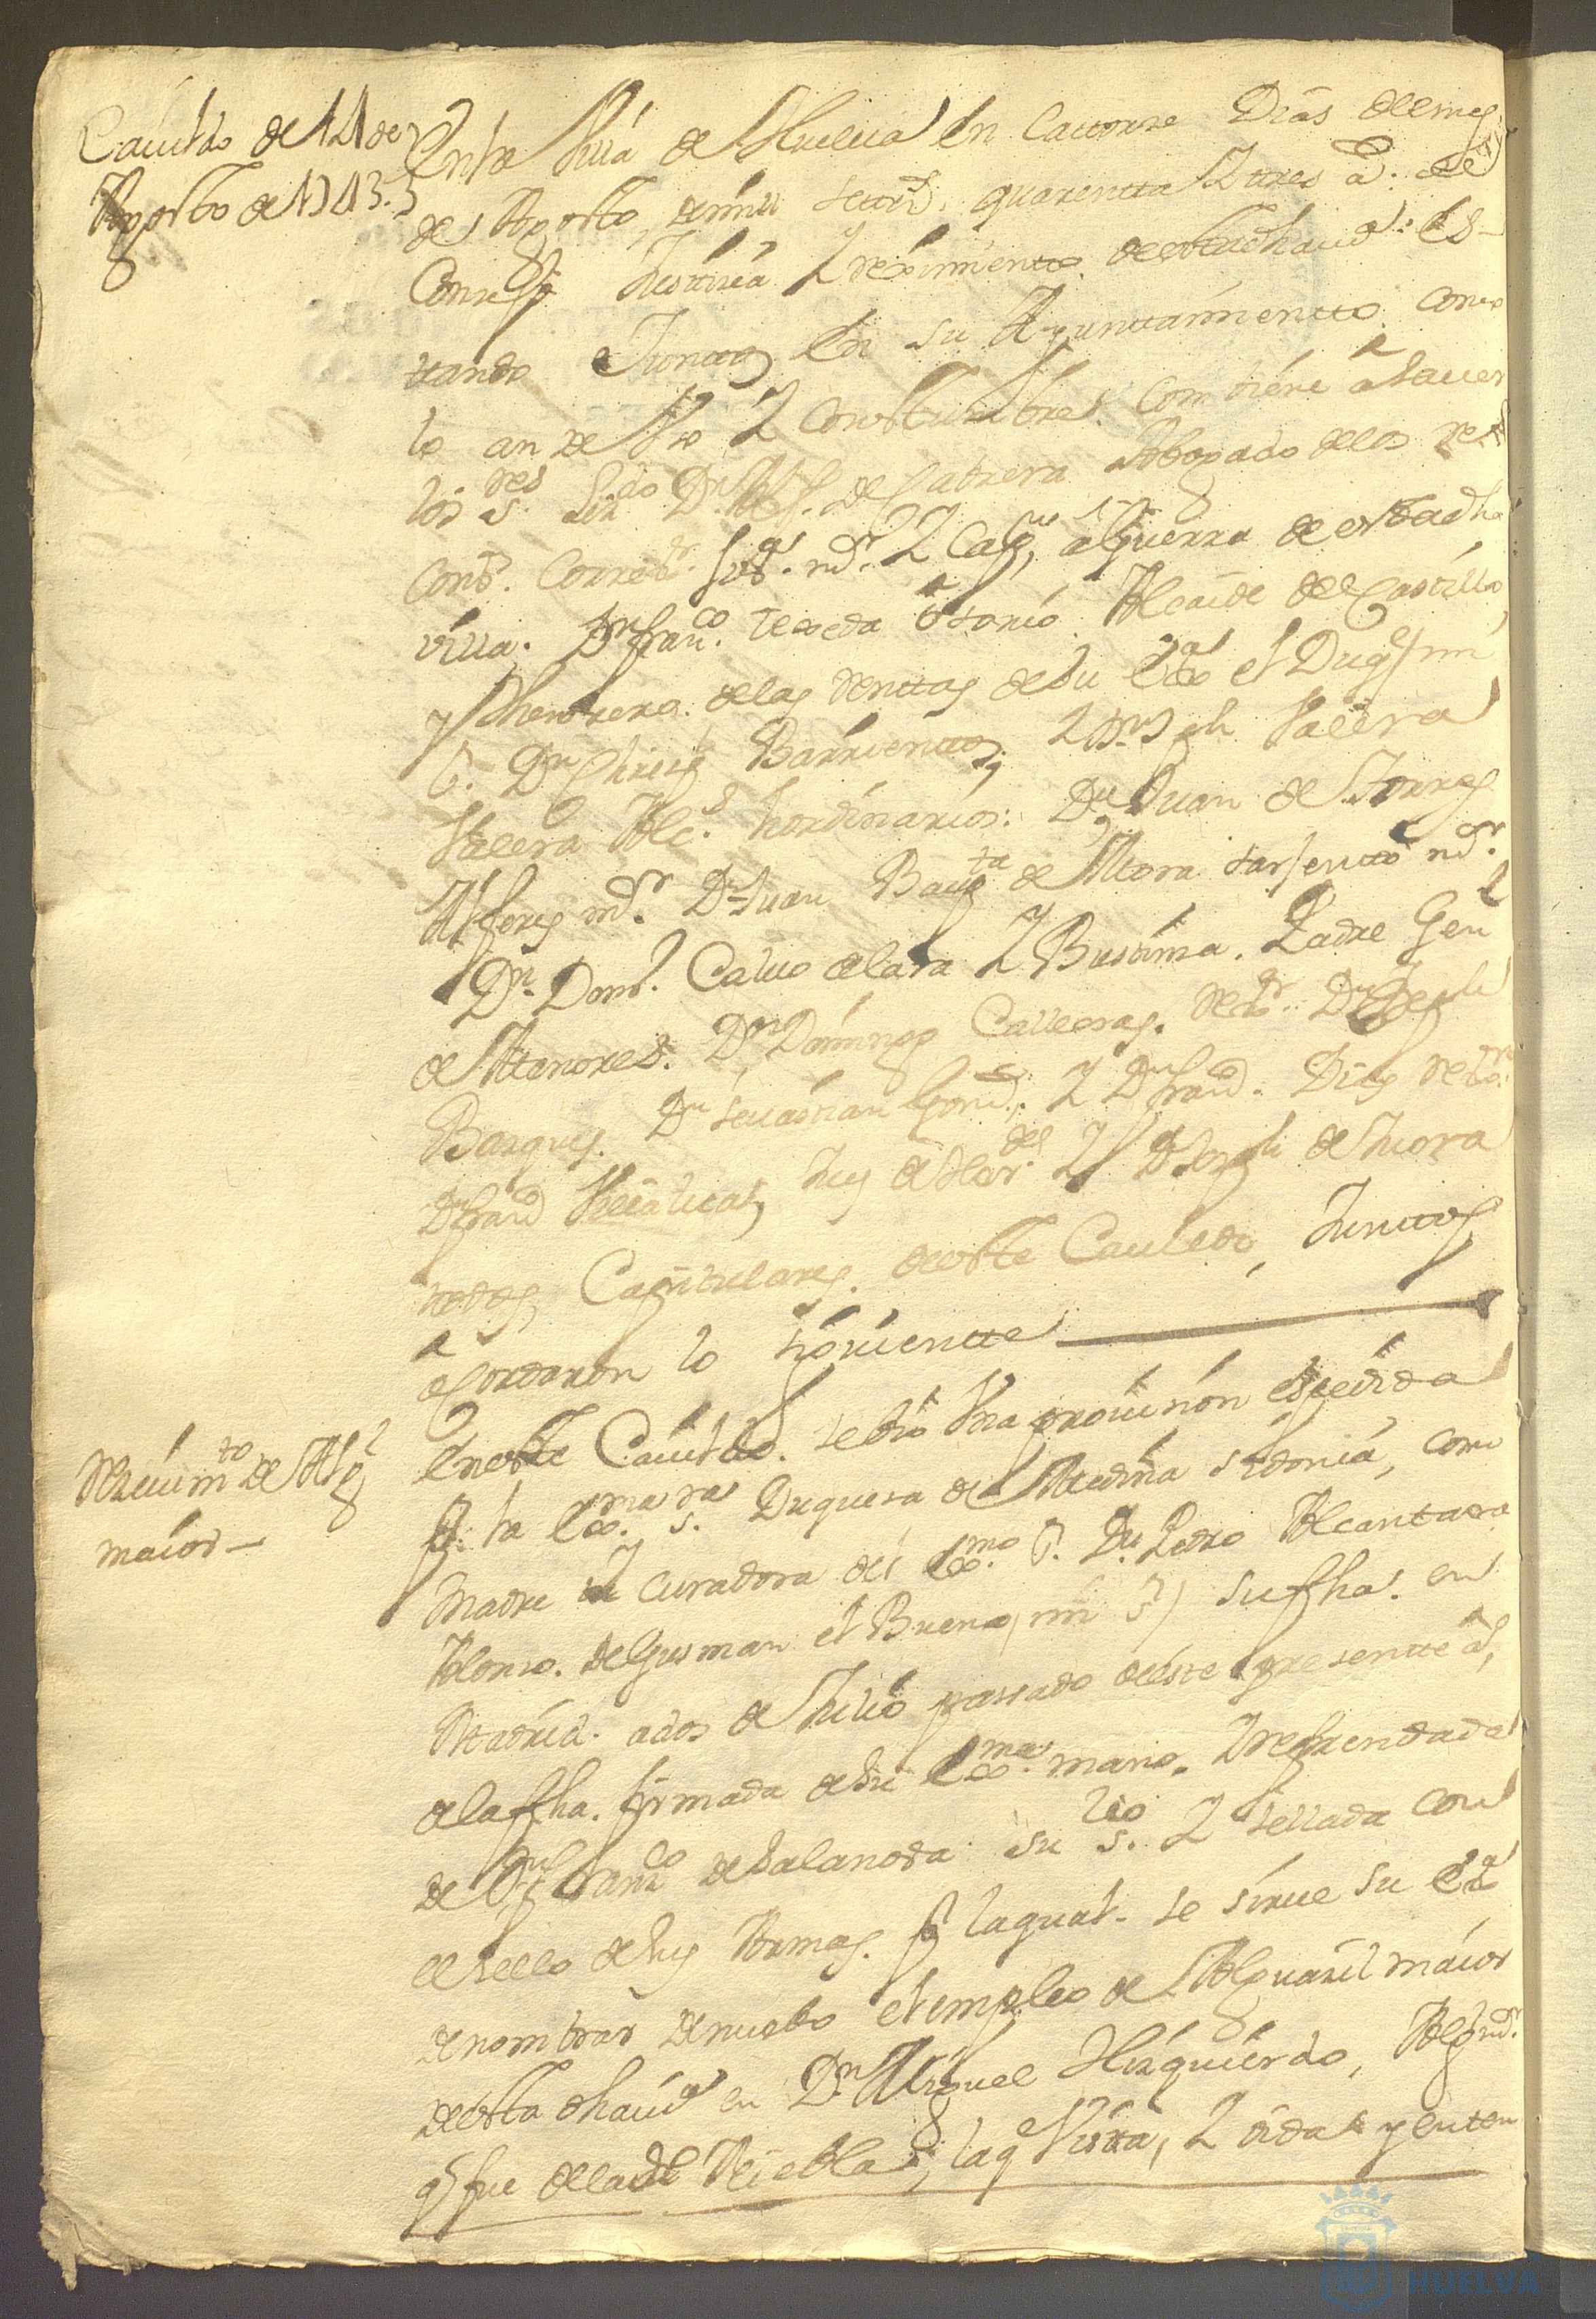 Cauildo de 14 de
Agosto de 1743.
En la Villa de Huelua en Catorze Dias del mes
de Agosto, de mill setts. quarentta Y tres a.s el
Conss.º Justicia Y reximientto de estta dha uª: es-
tando Junttos en su Ayunttamientto como
lo an de Vso Y Costtumbre. combiene a sauer
los s.res Liz.do D.n de Cabrera Abogado de los Rs
Cons.s Corre.or Jues. m.or Y Cap.n a Guerra de estta dha
villa. D.n Fran.co texeda Osorio Alcaide del Castillo
y thesorero de las Renttas de su Ex.a el Duq.e mi
S.r D.n Barrienttos, Y D.n Jph Valera
Valera Alc.s hordinarios: D.n Juan de Torres
Alferes m.or D.n Juan Baup.ta de Mora Sarjentto m.or
D.n Calvo de Lara Y Bustima. Padre Gen.l
de Menores. D.n Domingo Calleeras. Re.or D.n Joseph
Basques. D.n Seuastian Gonz.s Y D.n Fran.co Dias Re.or
D.n Fran.co Y D.n Joseph de Mora
todos Capitulares de este Cauildo, Junttos
acordaron lo siguientte
Reciuim.to de Alg.l
maior
En este Cauildo. se bio Vna prouision espedida
p.r la Ex.ma s.ra Duquesa de Medina sidonia, como
Madre Y curadora del Ex.mo S.r D.n Pedro Alcantara
Alonso. de Gusman el Bueno, mi s.r su fha. en
Madrid. a dos de Julio passado de este presentte a.º
de la fha. firmada de su Ex.ma mano. Y refrendada
de D.n Fran.co de Salanoba su s.rio Y sellada con
el sello de sus Armas. p.r la qual. se sirue su Ex.a
de nombrar de nuebo el empleo de Alguasil maior
de estta dha uª en D.n Miguel Hizquierdo, Alg. m.or
q.e fue de la de Niebla, la q.e Vista, Y oida y enten